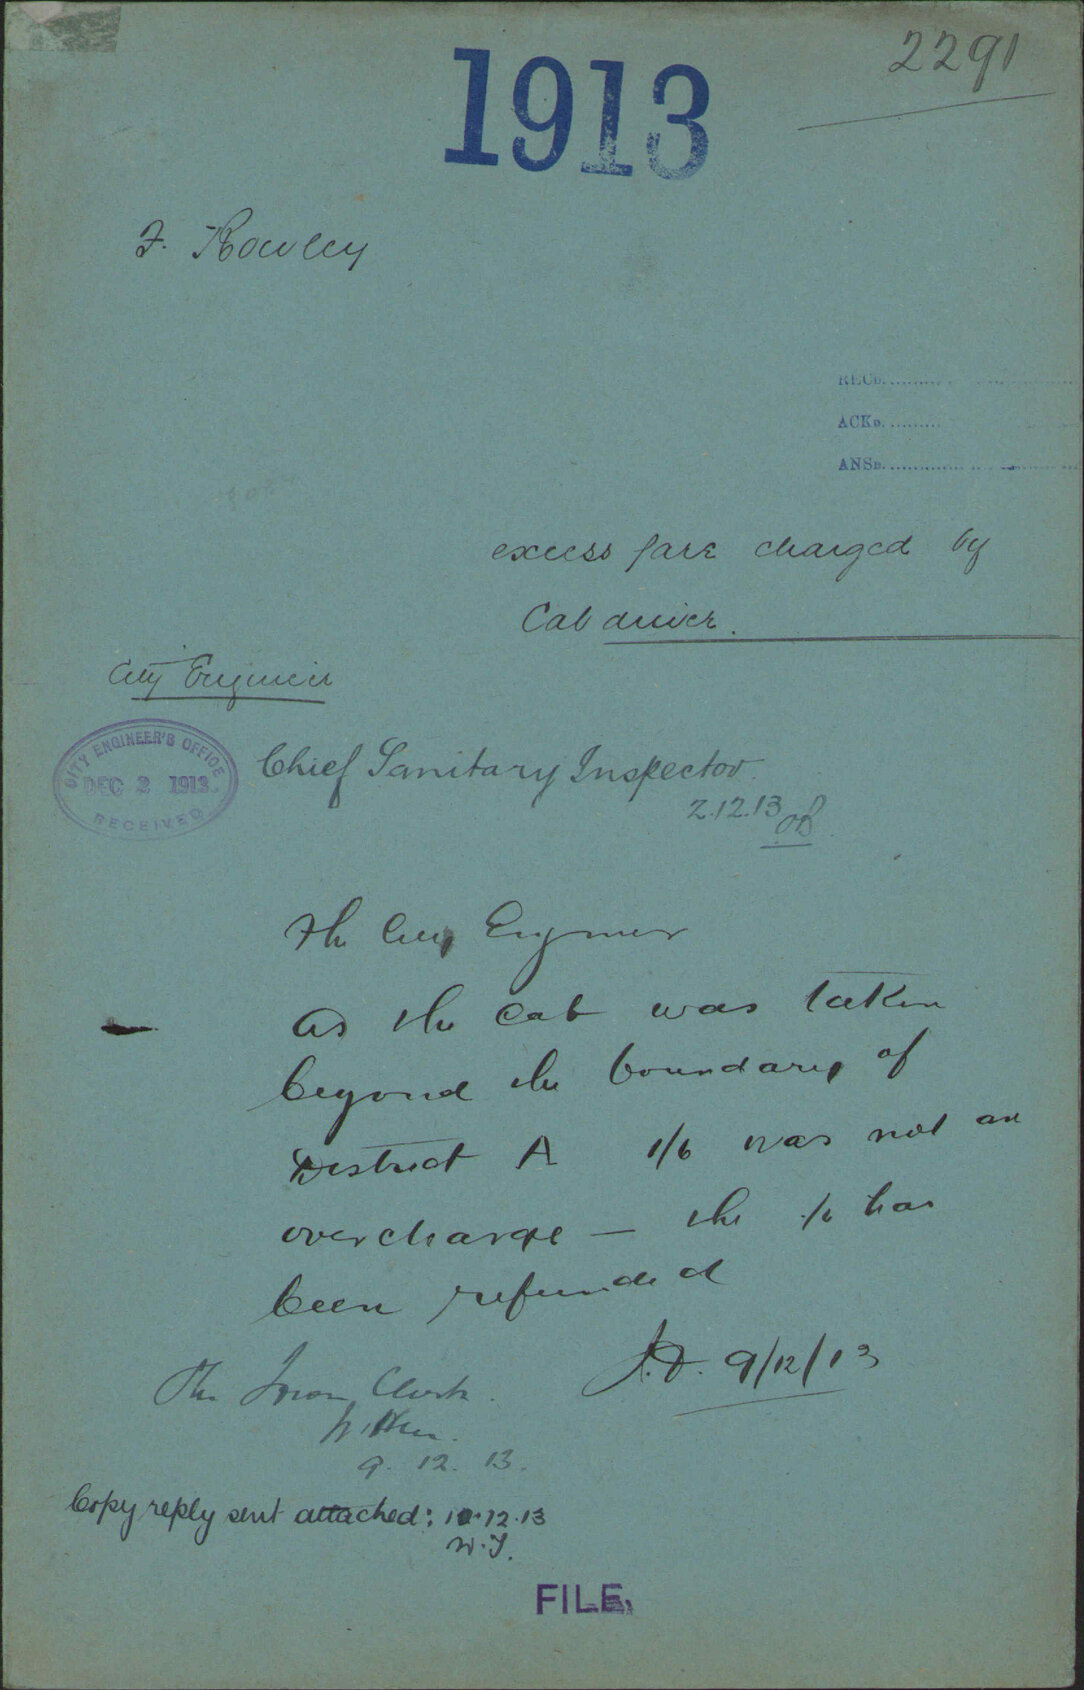 2291
1913
F. Rowley
RECD.
ACKD.
ANSD.
excess fare charged by
Cab driver.
City Engineer
CITY ENGINEER'S OFFICE
DEC 2 1913
RECEIVED
Chief Sanitary Inspector.
2.12.13
The City Engineer
As the cab was taken
beyond the boundary of
District A 1/6 was not an
overcharge — the /6 has
been refunded
9/12/13
The Town Clerk.
9. 12. 13.
Copy reply sent attached: 10.12.13
W.J.
FILE.